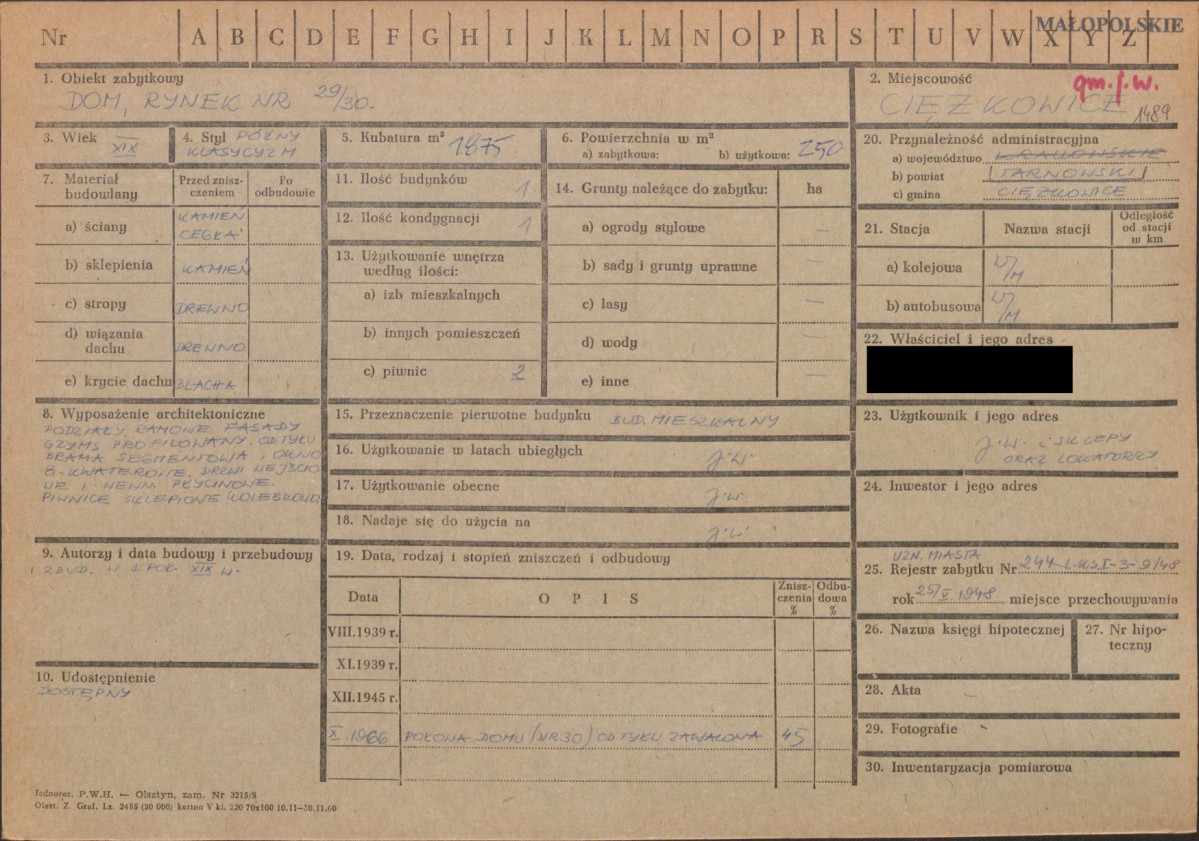 Nr A B C D E F G H I J K L M N O P R S T U V W X Y Z
MAŁOPOLSKIE
1. Obiekt zabytkowy
DOM, RYNEK NR 29/30.
2. Miejscowość
gm. j.w.
CIĘŻKOWICE 1489
3. Wiek XIX
4. Styl PÓŹNY
KLASYCYZM
5. Kubatura m³ 1875
6. Powierzchnia w m²
a) zabytkowa: b) użytkowa: 250
7. Materiał
budowlany
Przed znisz-
czeniem
Po
odbudowie
a) ściany KAMIEŃ
CEGŁA
b) sklepienia KAMIEŃ
c) stropy DREWNO
d) wiązania
dachu DREWNO
e) krycie dachu BLACHA
8. Wyposażenie architektoniczne
PODZIAŁY RAMOWE FASADY
GZYMS PROFILOWANY, OD TYŁU
BRAMA SEGMENTOWA I OKNO
8-KWATEROWE, DRZWI WEJŚCIO
WE I WEWN. PŁYCINOWE.
PIWNICE SKLEPIONE KOLEBKOWO
9. Autorzy i data budowy i przebudowy
ZBUD. W 1 POŁ. XIX W.
10. Udostępnienie
DOSTĘPNY
11. Ilość budynków 1
12. Ilość kondygnacji 1
13. Użytkowanie wnętrza
według ilości:
a) izb mieszkalnych
b) innych pomieszczeń
c) piwnic 2
14. Grunty należące do zabytku: ha
a) ogrody stylowe —
b) sady i grunty uprawne —
c) lasy —
d) wody —
e) inne —
15. Przeznaczenie pierwotne budynku BUD. MIESZKALNY
16. Użytkowanie w latach ubiegłych j.w.
17. Użytkowanie obecne j.w.
18. Nadaje się do użycia na j.w.
19. Data, rodzaj i stopień zniszczeń i odbudowy
Data O P I S Znisz-
czenia
% Odbu-
dowa
%
VIII.1939 r.
XI.1939 r.
XII.1945 r.
X. 1966 POŁOWA DOMU (NR 30) OD TYŁU ZAWALONA 45
20. Przynależność administracyjna
a) województwo KRAKOWSKIE
b) powiat TARNOWSKI
c) gmina CIĘŻKOWICE
21. Stacja Nazwa stacji Odległość
od stacji
w km
a) kolejowa W/M
b) autobusowa W/M
22. Właściciel i jego adres
23. Użytkownik i jego adres
J.W. i SKLEPY
ORAZ LOKATORZY
24. Inwestor i jego adres
UZN. MIASTA
25. Rejestr zabytku Nr 244-L-KS.I-3-9/48
rok 25/V. 1948 miejsce przechowywania
26. Nazwa księgi hipotecznej
27. Nr hipo-
teczny
28. Akta –
29. Fotografie -
30. Inwentaryzacja pomiarowa
Jednoraz. P.W.H. — Olsztyn, zam. Nr 3215/S
Olszt. Z. Graf. Lz. 2485 (30 000) karton V kl. 220 70x100 10.11—30.11.60